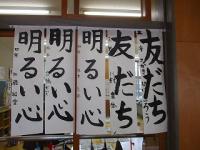 友だち
友だち
明るい心
明るい心
明るい心